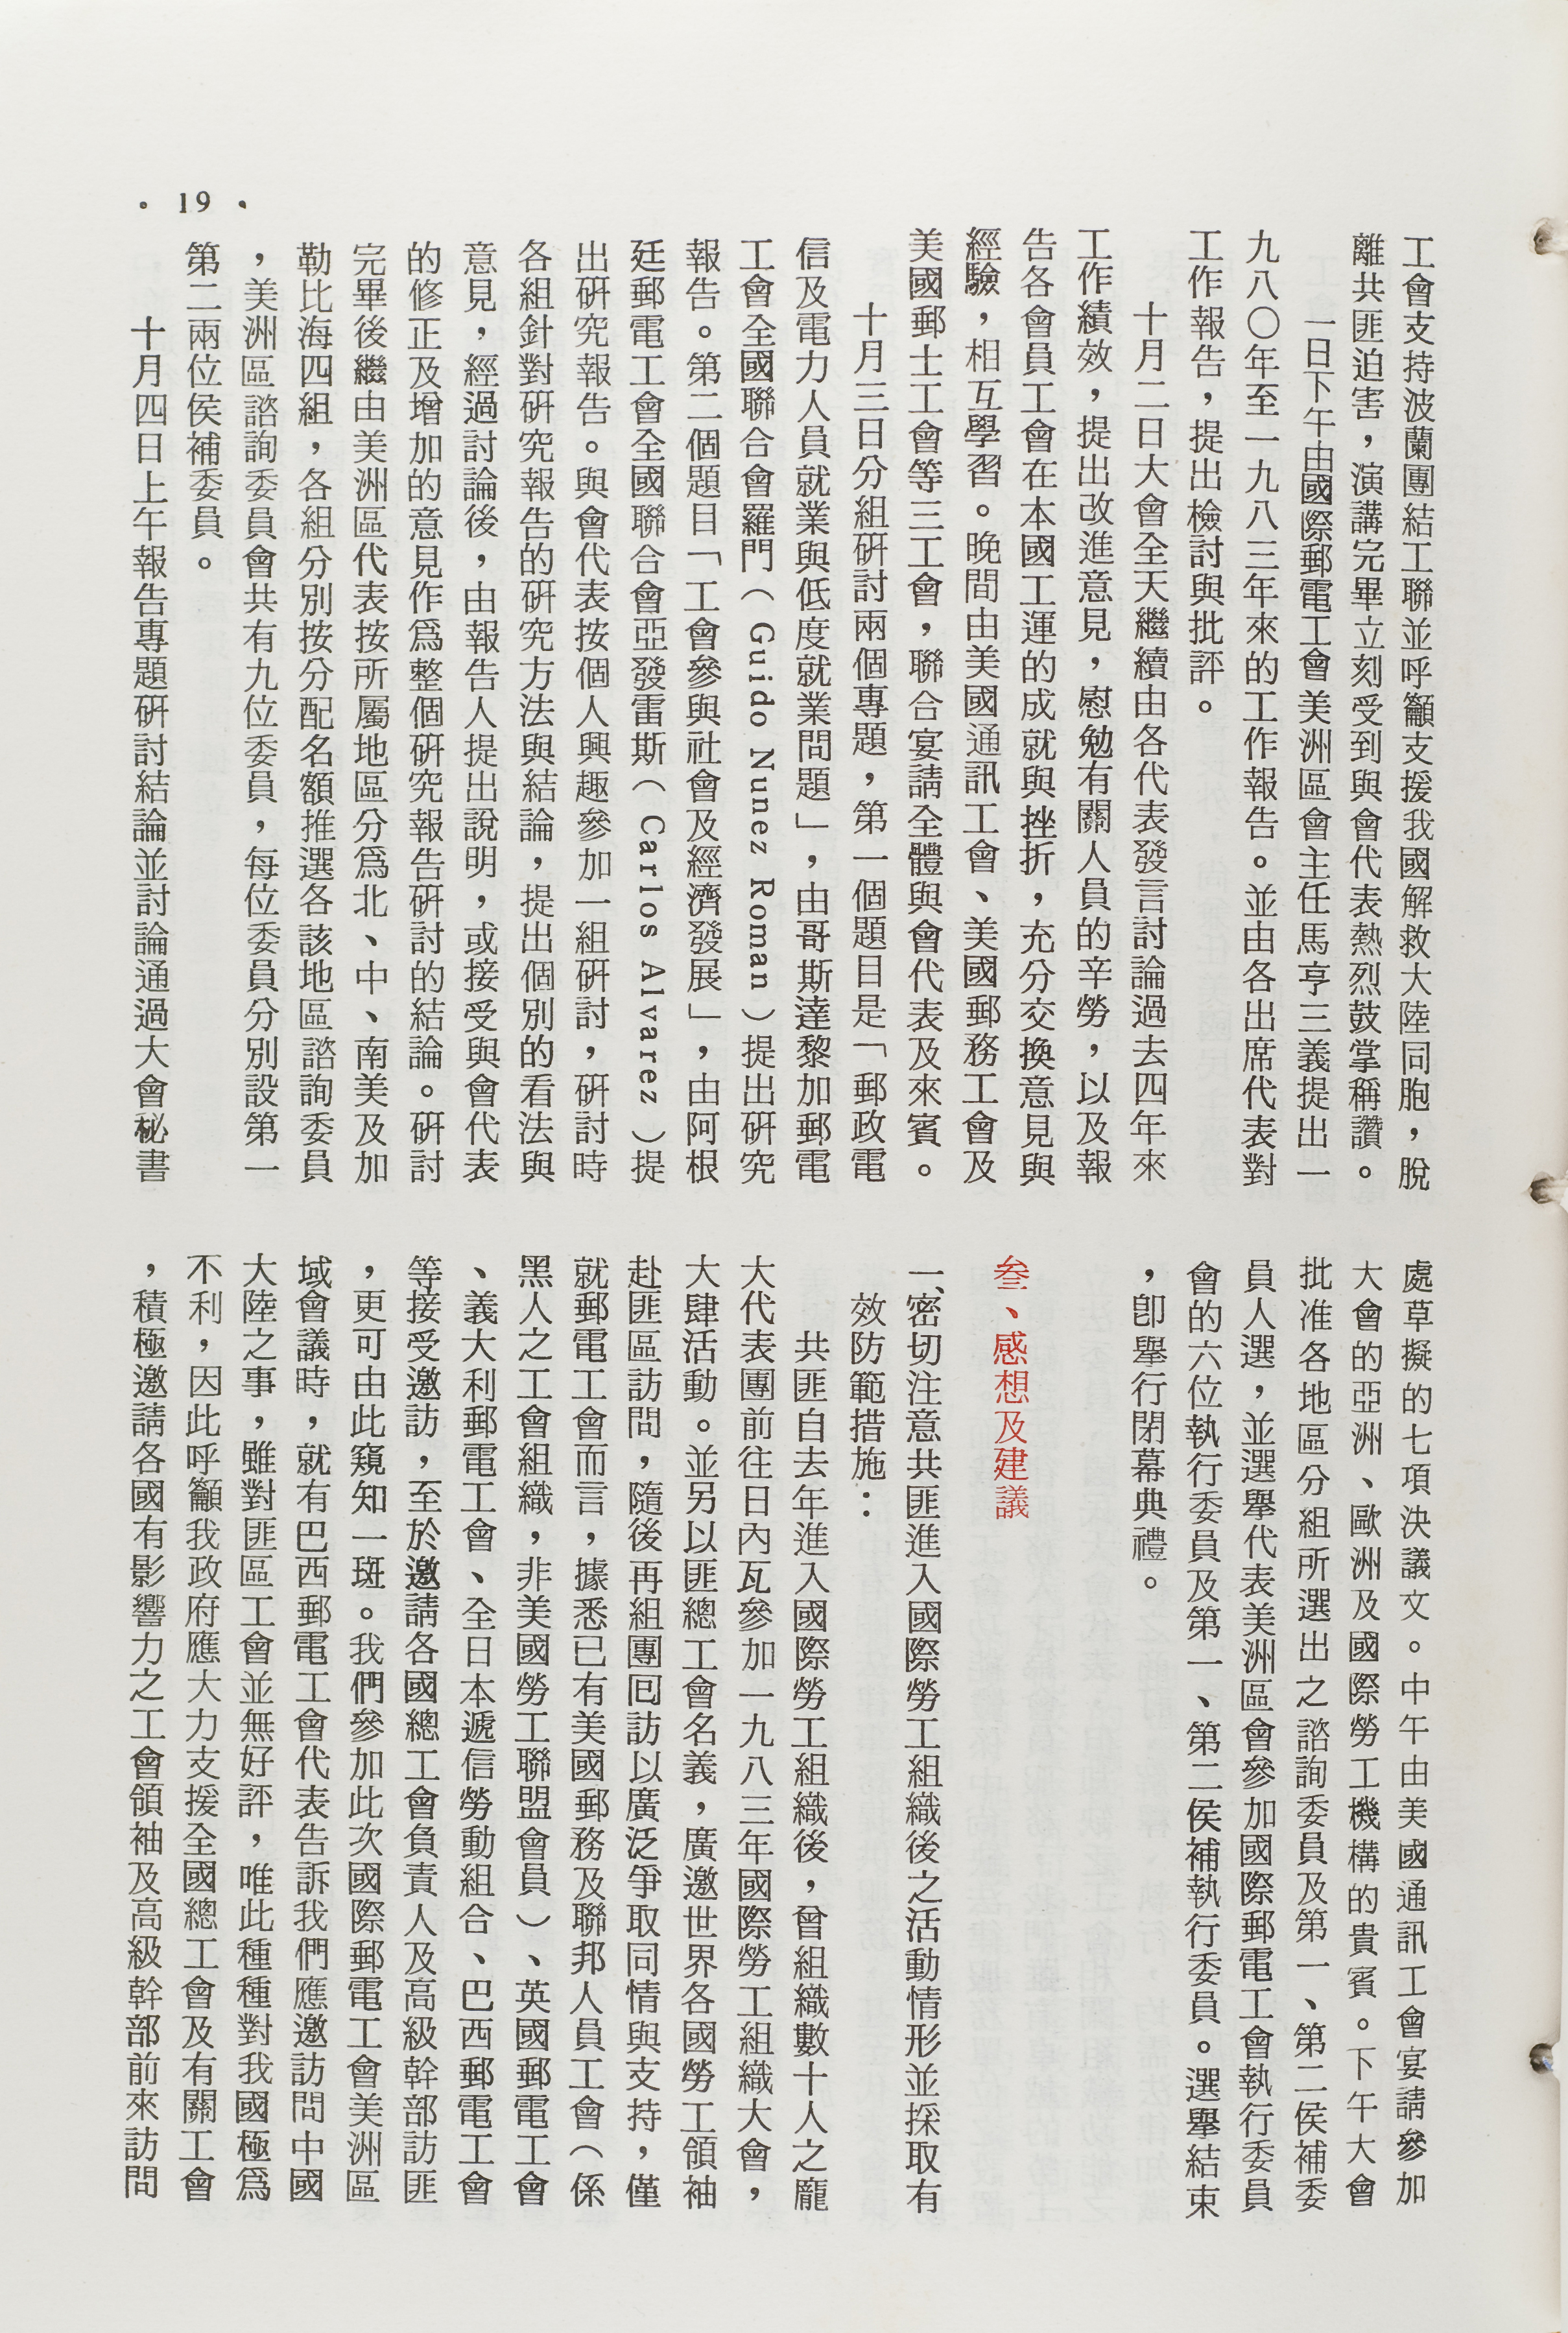 工會支持波蘭團結工聯並呼籲支援我國解救大陸同胞，脫
離共匪迫害，演講完畢立刻受到與會代表熱烈鼓掌稱讚。
一日下午由國際郵電工會美洲區會主任馬亨三義提出一
九八〇年至一九八三年來的工作報告。並由各出席代表對
工作報告，提出檢討與批評。
十月二日大會全天繼續由各代表發言討論過去四年來
工作績效，提出改進意見，慰勉有關人員的辛勞，以及報
告各會員工會在本國工運的成就與挫折，充分交換意見與
經驗，相互學習。晚間由美國通訊工會、美國郵務工會及
美國郵士工會等三工會，聯合宴請全體與會代表及來賓。
十月三日分組研討兩個專題，第一個題目是「郵政電
信及電力人員就業與低度就業問題」，由哥斯達黎加郵電
工會全國聯合會羅門（Guido Nunez Roman）提出研究
報告。第二個題目「工會參與社會及經濟發展」，由阿根
廷郵電工會全國聯合會亞發雷斯（Carlos Alvarez）提
出研究報告。與會代表按個人興趣參加一組研討，研討時
各組針對研究報告的研究方法與結論，提出個別的看法與
意見，經過討論後，由報告人提出說明，或接受與會代表
的修正及增加的意見作爲整個研究報告研討的結論。研討
完畢後繼由美洲區代表按所屬地區分爲北、中、南美及加
勒比海四組，各組分別按分配名額推選各該地區諮詢委員
，美洲區諮詢委員會共有九位委員，每位委員分別設第一
第二兩位侯補委員。
十月四日上午報告專題研討結論並討論通過大會秘書
• 19 •
處草擬的七項決議文。中午由美國通訊工會宴請參加
大會的亞洲、歐洲及國際勞工機構的貴賓。下午大會
批准各地區分組所選出之諮詢委員及第一、第二侯補委
員人選，並選舉代表美洲區會參加國際郵電工會執行委員
會的六位執行委員及第一、第二侯補執行委員。選舉結束
，卽舉行閉幕典禮。
叁、感想及建議
一、密切注意共匪進入國際勞工組織後之活動情形並採取有
效防範措施：
共匪自去年進入國際勞工組織後，曾組織數十人之龐
大代表團前往日內瓦參加一九八三年國際勞工組織大會，
大肆活動。並另以匪總工會名義，廣邀世界各國勞工領袖
赴匪區訪問，隨後再組團囘訪以廣泛爭取同情與支持，僅
就郵電工會而言，據悉已有美國郵務及聯邦人員工會（係
黑人之工會組織，非美國勞工聯盟會員）、英國郵電工會
、義大利郵電工會、全日本遞信勞動組合、巴西郵電工會
等接受邀訪，至於邀請各國總工會負責人及高級幹部訪匪
，更可由此窺知一斑。我們參加此次國際郵電工會美洲區
域會議時，就有巴西郵電工會代表告訴我們應邀訪問中國
大陸之事，雖對匪區工會並無好評，唯此種種對我國極爲
不利，因此呼籲我政府應大力支援全國總工會及有關工會
，積極邀請各國有影響力之工會領袖及高級幹部前來訪問